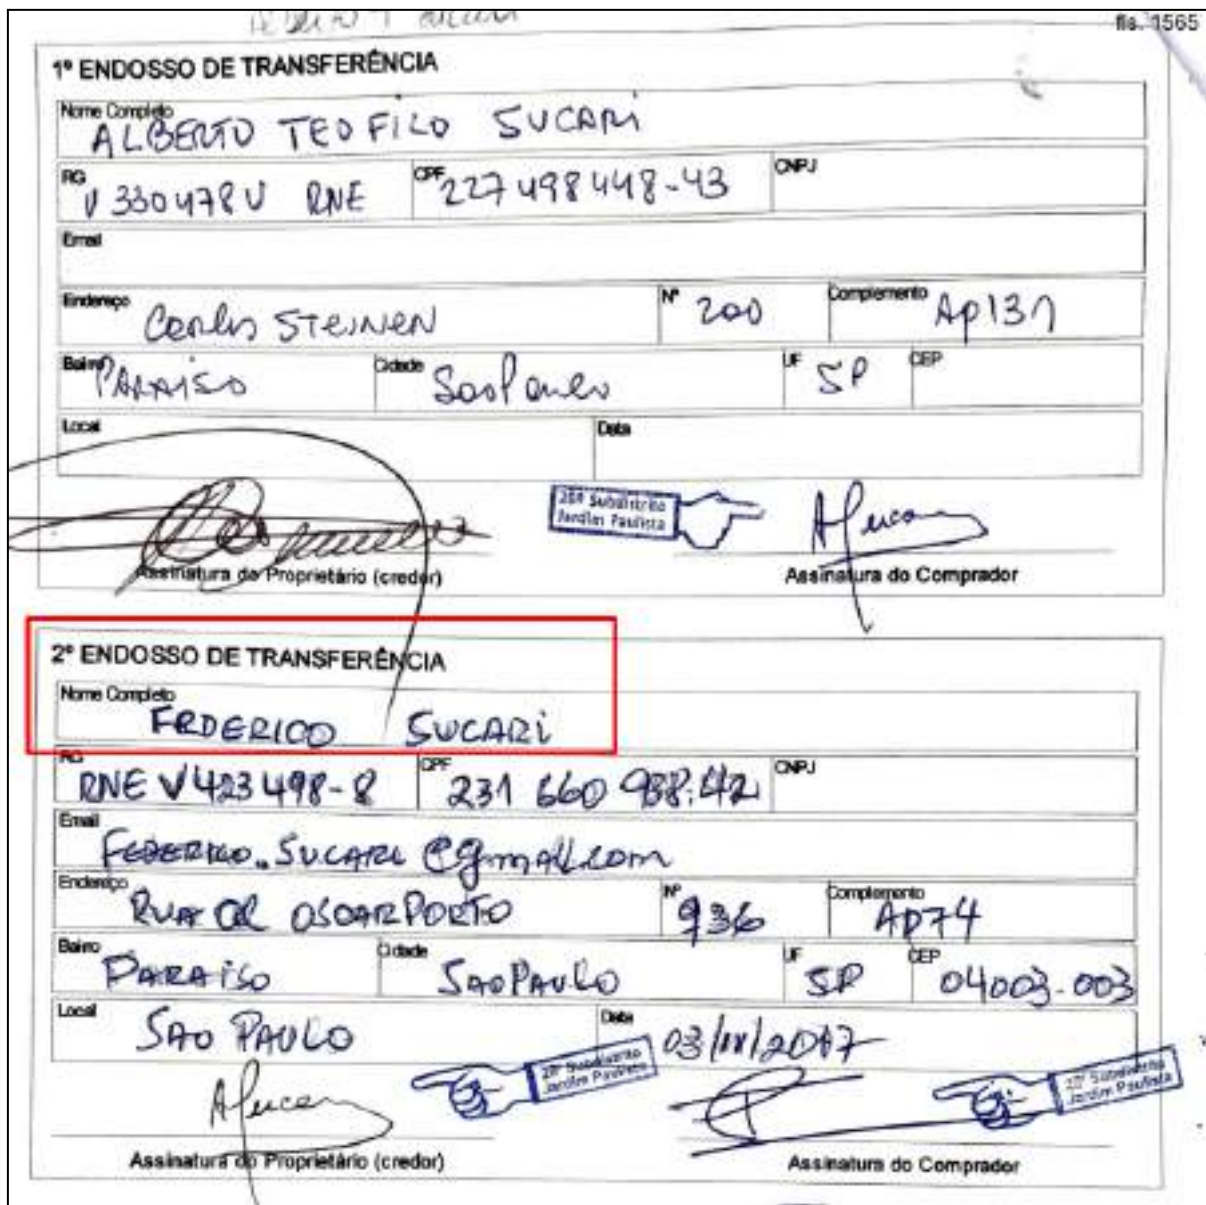 fls. 1565
1º ENDOSSO DE TRANSFERÊNCIA
Nome Completo
ALBERTO TEOFILO SUCARI
RG V330478V RNE CPF 227498448-43 CNPJ
Email
Endereço Carlos STEINEN Nº 200 Complemento Ap131
Bairro PARAISO Cidade Sao Paulo UF SP CEP
Local Data
28º Subdistrito
Jardim Paulista
Assinatura do Proprietário (credor) Assinatura do Comprador
2º ENDOSSO DE TRANSFERÊNCIA
Nome Completo
FEDERICO SUCARI
RG RNE V423498-8 CPF 231 660 988-42 CNPJ
Email
FEDERICO.SUCARI @gmail.com
Endereço RUA DR OSCAR PORTO Nº 936 Complemento AP74
Bairro PARAISO Cidade SAO PAULO UF SP CEP 04003-003
Local SAO PAULO Data 2017
28º Subdistrito
Jardim Paulista
28º Subdistrito
Jardim Paulista
Assinatura do Proprietário (credor) Assinatura do Comprador